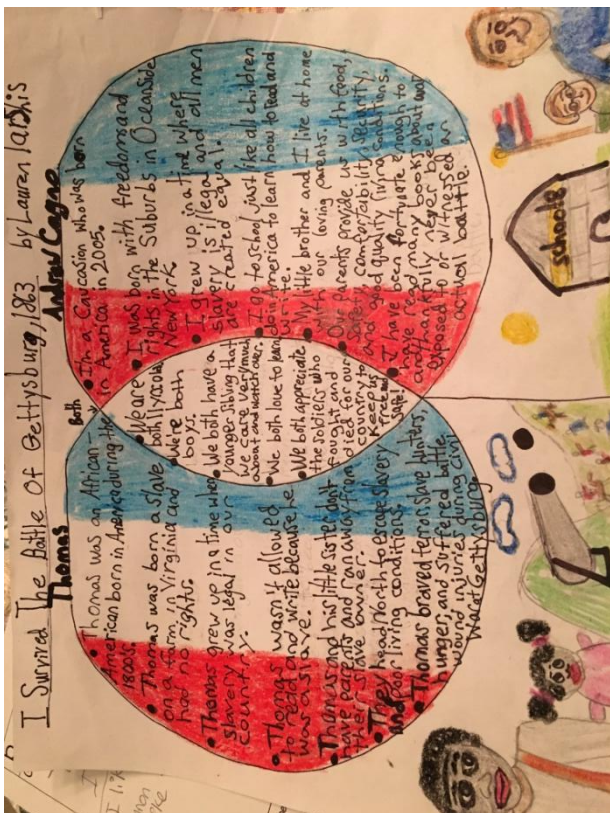 I Survived The Battle Of Gettysburg, 1863 by Lauren Tarshis
Thomas
• Thomas was an African-
American born in America during the
1800s.
• Thomas was born a slave
on a farm in Virginia and
had no rights.
• Thomas grew up in a time when
slavery was legal in our
country.
• Thomas wasn't allowed
to read and write because he
was a slave.
• Thomas and his little sister don't
have parents and ran away from
their slave owner.
• They head North to escape slavery
and poor living conditions.
• Thomas braved terror, slave hunters,
hunger, and suffered battle
wound injuries during Civil
War at Gettysburg.
Both
• We are
both 11 years old.
• We're both
boys.
• We both have a
younger sibling that
we care very much
about and watch over.
• We both love to learn
• We both appreciate
the soldiers who
fought and
died for our
country to
Keep us
free and
safe!
Andrew Cagne
• I'm a Caucasian who was born
in America in 2005.
• I was born with freedoms and
rights in the Suburbs in Oceanside
New York.
• I grew up in a time where
slavery is illegal and all men
are created equal.
• I go to school just like all children
do in America to learn how to read and
write.
• My little brother and I live at home
with our loving parents.
• Our parents provide us with food,
safety, comfortability, security,
and good quality living conditions.
• I have been fortunate enough to
have read many books about war
and thankfully never been
exposed to or witnessed an
actual battle.
schools
I lik